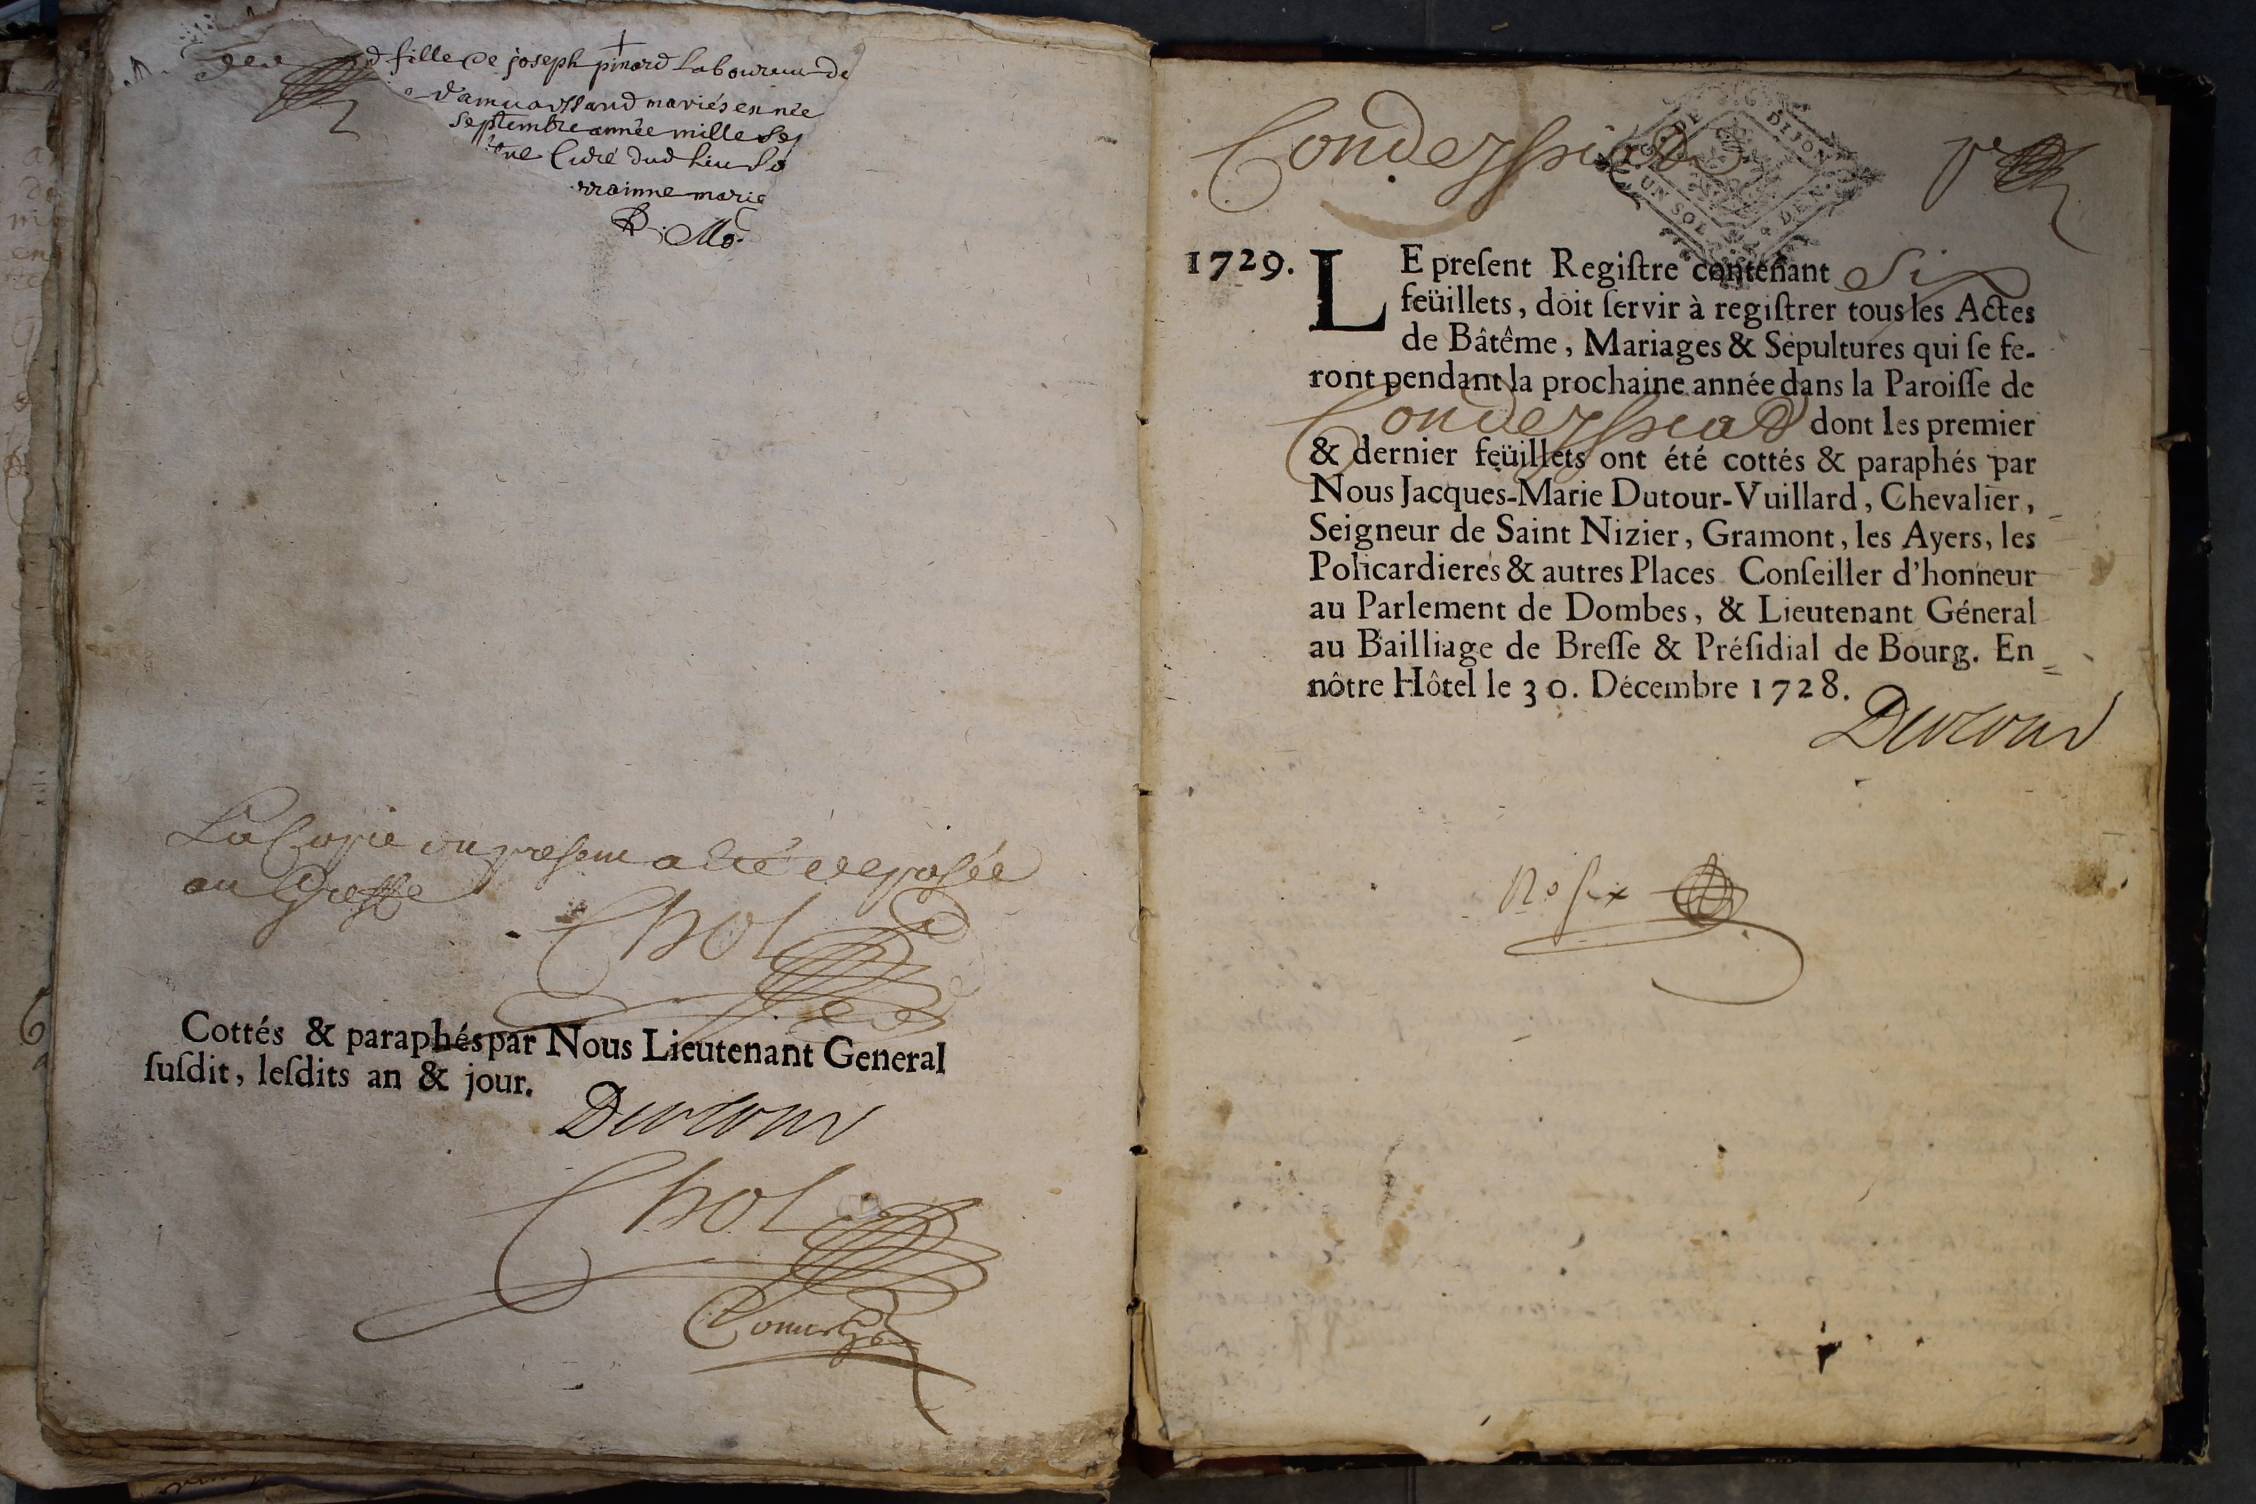 fille de joseph pinard laboureur de
mariés en née
septembre année mille sep
Curé dud lieu
marie
La Copie du present a eté deposée
au Greffe
Chol
Cottés & paraphés par Nous Lieutenant General
ſuſdit, leſdits an & jour.
Dutour
Chol
Conderssiad
G. DE DIJON
UN SOL
1729. LE preſent Regiſtre contenant Six
feüillets, doit ſervir à regiſtrer tous les Actes
de Bâtême, Mariages & Sepultures qui ſe fe-
ront pendant la prochaine année dans la Paroiſſe de
Conderssiad dont les premier
& dernier feüillets ont été cottés & paraphés par
Nous Jacques-Marie Dutour-Vuillard, Chevalier,
Seigneur de Saint Nizier, Gramont, les Ayers, les
Policardieres & autres Places Conſeiller d'honneur
au Parlement de Dombes, & Lieutenant Géneral
au Bailliage de Breſſe & Préſidial de Bourg. En
nôtre Hôtel le 30. Décembre 1728.
Dutour
No six